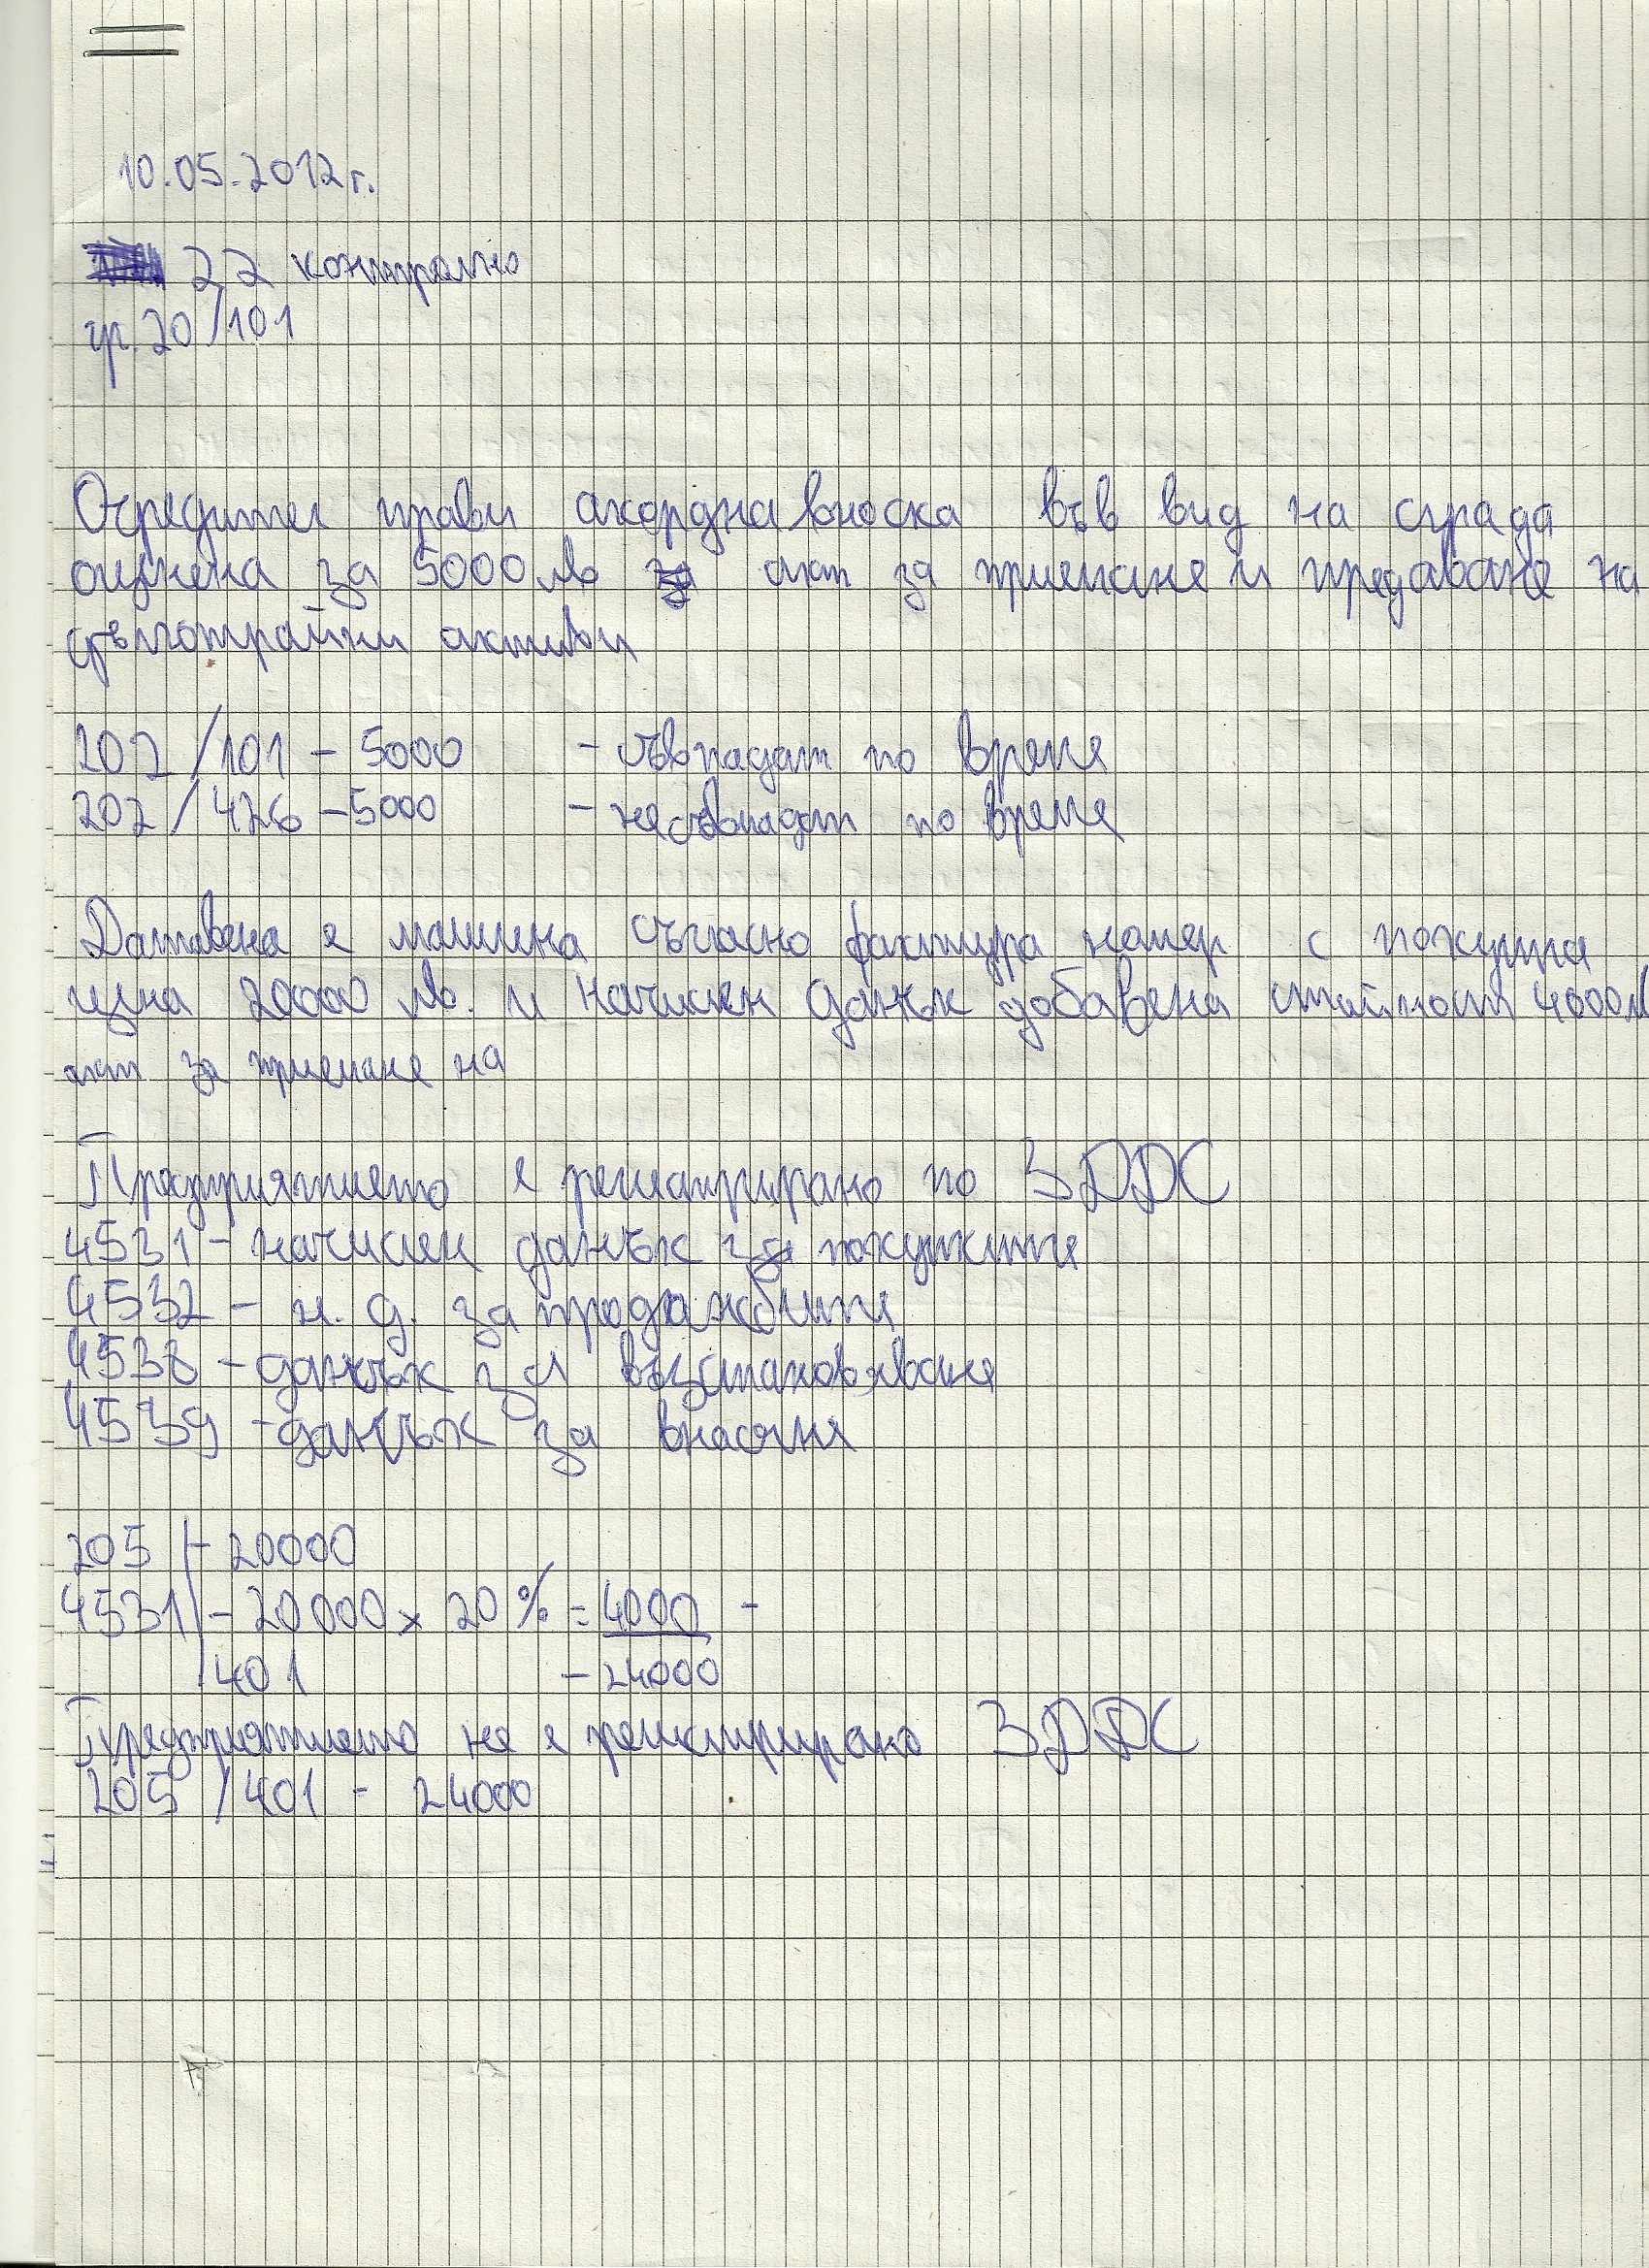 10.05.2012г.
22 контролно
гр.20/101
Очредител прави акордна вноска във вид на сграда
оценена за 5000 лв акт за приемане и предаване на
дълготрайни активи
202/101 - 5000 - съвпадат по време
202/426 - 5000 - несъвпадат по време
Доставена е машина съгласно фактура номер с покупна
цена 20000 лв. и начислен данък добавена стойност 4000лв
акт за приемане на
Предприятието е регистрирано по ЗДДС
4531 - начислен данък за покупките
4532 - н. д. за продажбите
4538 - данък за възстановяване
4539 - данък за внасяне
205 - 20000
4531 - 20000 x 20% = 4000 -
401 - 24000
Предприятието не е регистрирано ЗДДС
205 / 401 - 24000